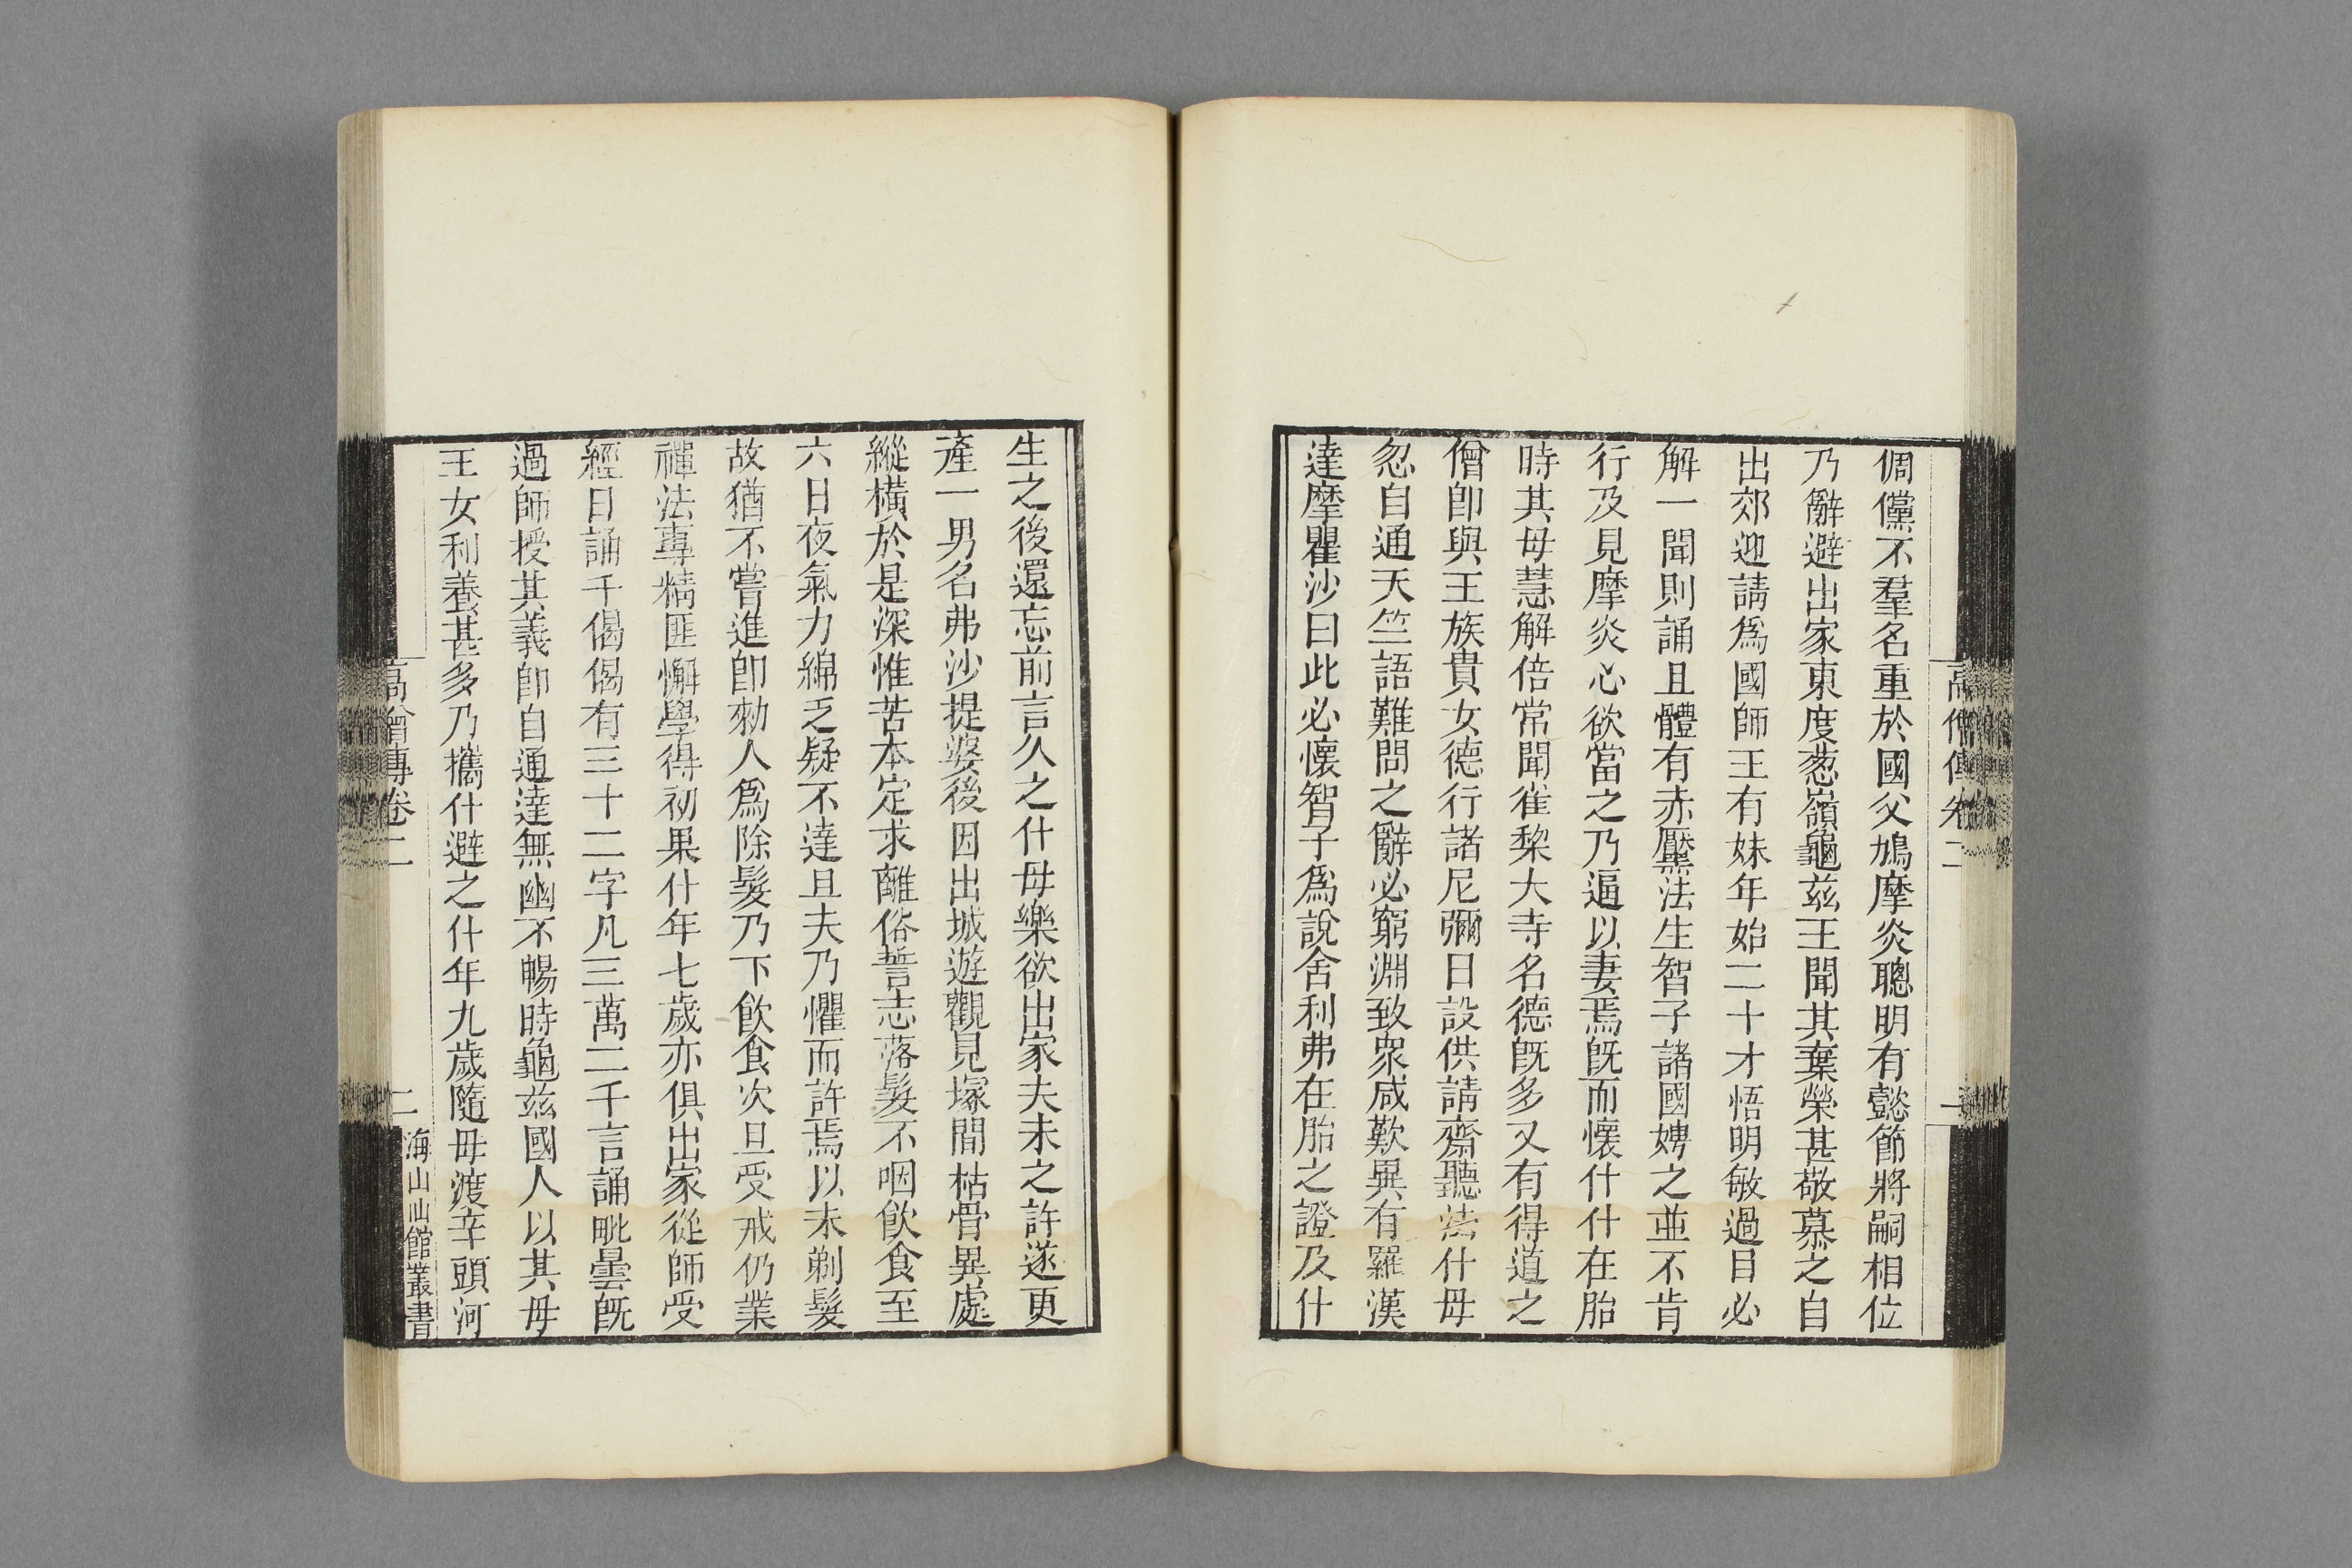 倜儻不羣名重於國父鳩摩炎聰明有懿節將嗣相位
乃辭避出家東度葱嶺龜茲王聞其棄榮甚敬慕之自
出郊迎請爲國師王有妹年始二十才悟明敏過目必
解一聞則誦且體有赤黶法生智子諸國娉之並不肯
行及見摩炎心欲當之乃逼以妻焉旣而懷什什在胎
時其母慧解倍常聞雀棃大寺名德旣多又有得道之
僧卽與王族貴女德行諸尼彌日設供請齋聽法什母
忽自通天竺語難問之辭必窮淵致衆咸歎異有羅漢
達摩瞿沙曰此必懷智子爲說舍利弗在胎之證及什
高僧傳卷二
生之後還忘前言久之什母樂欲出家夫未之許遂更
產一男名弗沙提婆後因出城遊觀見塚間枯骨異處
縱橫於是深惟苦本定求離俗誓志落髮不咽飲食至
六日夜氣力綿乏疑不達旦夫乃懼而許焉以未剃髮
故猶不嘗進卽勑人爲除髮乃下飲食次旦受戒仍業
禪法專精匪懈學得初果什年七歲亦俱出家從師受
經日誦千偈偈有三十二字凡三萬二千言誦毗曇旣
過師授其義卽自通達無幽不暢時龜茲國人以其母
王女利養甚多乃攜什避之什年九歲隨母渡辛頭河
高僧傳卷二
二
海山仙館叢書